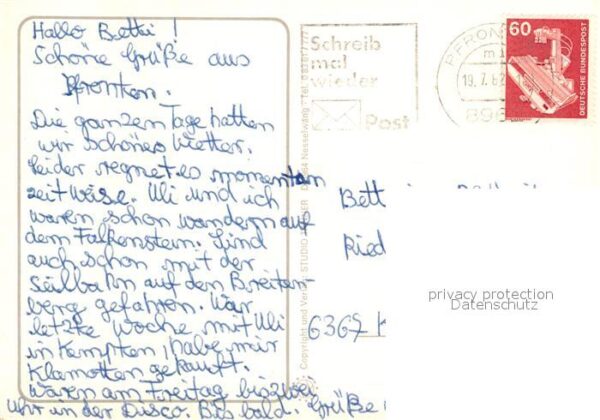 Hallo Betti!
Schöne Grüße aus
Pfronten.
Die ganzen Tage hatten
wir schönes Wetter.
Leider regnet es momentan
zeitweise. Uli und ich
waren schon wandern auf
dem Falkenstein. Sind
auch schon mit der
Seilbahn auf den Breiten-
berg gefahren. War
letzte Woche mit Uli
in Kempten, habe mir
Klamotten gekauft.
Waren am Freitag bis zwei
Uhr in der Disco. Bis bald. Grüße
Copyright und Verlag: STUDIO Nesselwang Tel.
Schreib
mal
wieder
Post
PFRON
19.7.82
896
60
DEUTSCHE BUNDESPOST
Bett
Ried
6367
privacy protection
Datenschutz